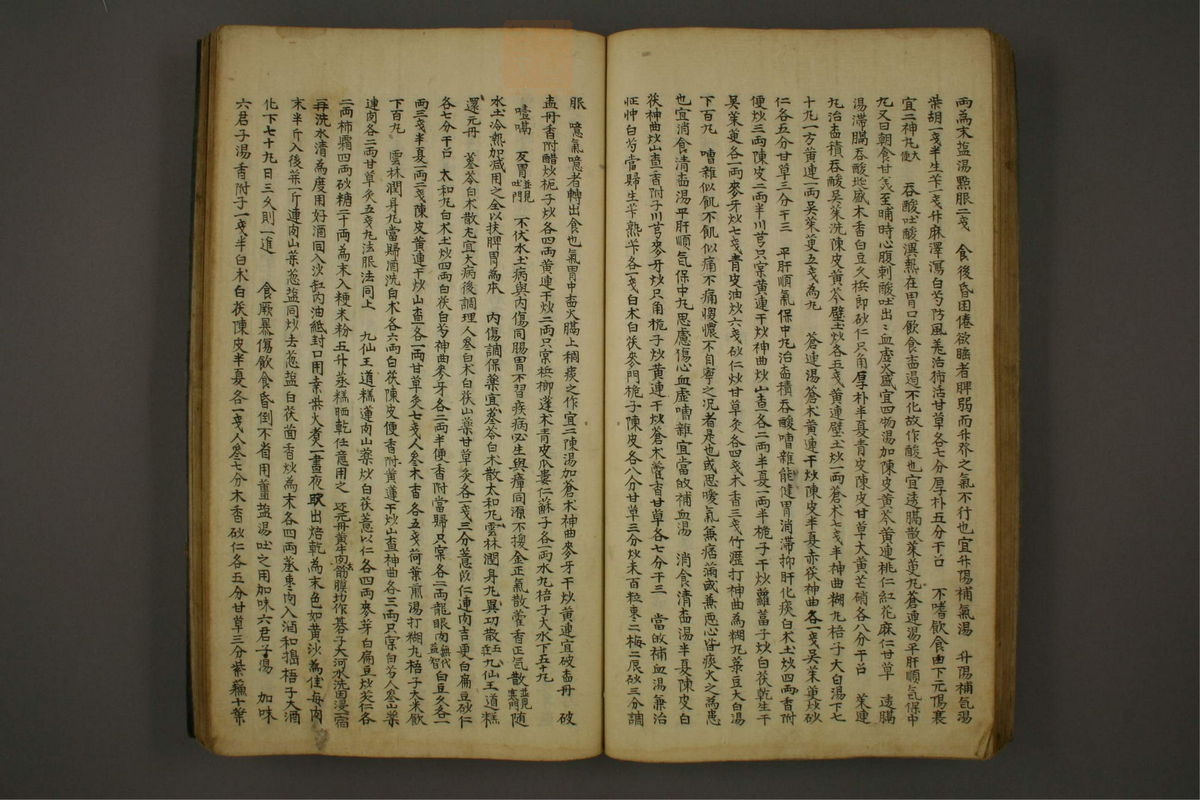 兩爲末塩湯㸃服二戔 食後昏困倦欲睡者脾弱而升發之氣不行也宜升陽補氣湯 升陽補氣湯
柴胡一戔半生苄一戔升麻澤瀉白芍防風羌活独活甘草各七分厚朴五分干召 不嗜飮食由下元傷衰
宜二神丸 吞酸吐酸濕熱在胃口飮食盍過不化故作酸也宜透膈散茱萸丸蒼連湯平肝順气保中
丸又曰朝食甘美至晡時心腹刺酸吐出血虛火盛宜四物湯加陳皮黃芩黃連桃仁紅花麻仁甘草 透膈
湯滯膈吞酸木香白豆久梹即砂仁只角厚朴半夏青皮陳皮甘草大黃芒硝各八分干召 茱連
丸治盍積吞酸吳茱洗陳皮黃芩壁土炒各五戔黃連壁土炒一兩蒼朮七戔半神曲糊丸梧子大白湯下七
十丸一方黃連一兩吳茱萸五戔爲丸 蒼連湯蒼朮黃連干炒陳皮半夏赤茯神曲各一戔吳茱萸炒砂
仁各五分甘草三分干三 平肝順氣保中丸治盍積吞酸嘈雜能健胃消滯抑肝化痰白朮土炒四兩香附
便炒三兩陳皮二兩半川芎只宲黃連干炒神曲炒山查各二兩半夏一兩半梔子干炒蘿葍子炒白茯乾生干
吳茱萸各一兩麥牙炒七戔青皮油炒六戔砂仁炒甘草灸各四戔木香三戔竹瀝打神曲爲糊丸菉豆大白湯
下百丸 嘈雜似飢不飢似痛不痛懊憹不自寧之況者是也或思噯氣兼痞滿或兼惡心皆痰火之爲患
也宜消食淸盍湯平肝順气保中丸思慮傷心血虛嘈雜宜當㱕補血湯 消食淸盍湯半夏陳皮白
茯神曲炒山查香附子川芎麥牙炒只角梔子炒黃連干炒蒼朮藿香甘草各七分干三 當㱕補血湯兼治
怔忡白芍當歸生苄熟苄各一戔白朮白茯麥門梔子陳皮各八分甘草三分炒米百粒枣二梅二辰砂三分調
服 噫氣噫者轉出食也氣胃中盍火膈上稠痰之作宜二陳湯加蒼朮神曲麥牙干炒黃連宜破盍丹 破
盍丹香附醋炒梔子炒各四兩黃連干炒二兩只宲梹榔蓬朮青皮瓜蔞仁蘇子各一兩水丸梧子大水下五十丸
噎膈 反胃 不伏水土病與內傷同腸胃不習疾病必生與瘴同源不換金正氣散藿香正气散隨
水土冷熱加减用之全以扶脾胃爲本 內傷調保藥宜参苓白朮散太和丸雲林潤身丸異功散九仙王道糕
還元丹 参苓白朮散尤宜大病後調理人参白朮白茯山藥甘草灸各一戔三分薏苡仁連肉吉更白扁豆砂仁
各七分干召 太和丸白朮土炒四兩白茯白芍神曲麥牙各二兩半便香附當歸只宲各二兩龍眼肉白豆久各一
兩三戔半夏一兩二戔陳皮黃連干炒山查各一兩甘草灸七戔人参木香各五戔荷葉煎湯打糊丸梧子大米飮
下百丸 雲林潤身丸當歸酒洗白朮各六兩白茯陳皮便香附黃連干炒山查神曲各三兩只宲白芍人参山藥
連肉各二兩甘草灸五戔丸法服法同上 九仙王道糕蓮肉山藥炒白茯薏以仁各四兩麥芽白扁豆炒芡仁各
二兩柿霜四兩砂糖二十兩爲末入粳米粉五升蒸糕晒乾任意用之 还元丹黃牛肉去筋膜切作碁子大河水洗因浸一宿
再洗水淸爲度用好酒同入沙缸內油紙封口用桑柴火煑一晝夜取出焙乾爲末色如黃沙爲佳每肉
末半斤入後藥一斤連肉山藥葱塩同炒去葱塩白茯茴香炒爲末各四兩蒸枣肉入酒和搗梧子大酒
化下七十丸日三久則一進 食厥暴傷飮食昏倒不省用薑塩湯吐之用加味六君子湯 加味
六君子湯香附子一戔半白朮白茯陳皮半夏各一戔人参七分木香砂仁各五分甘草三分紫蘓十葉